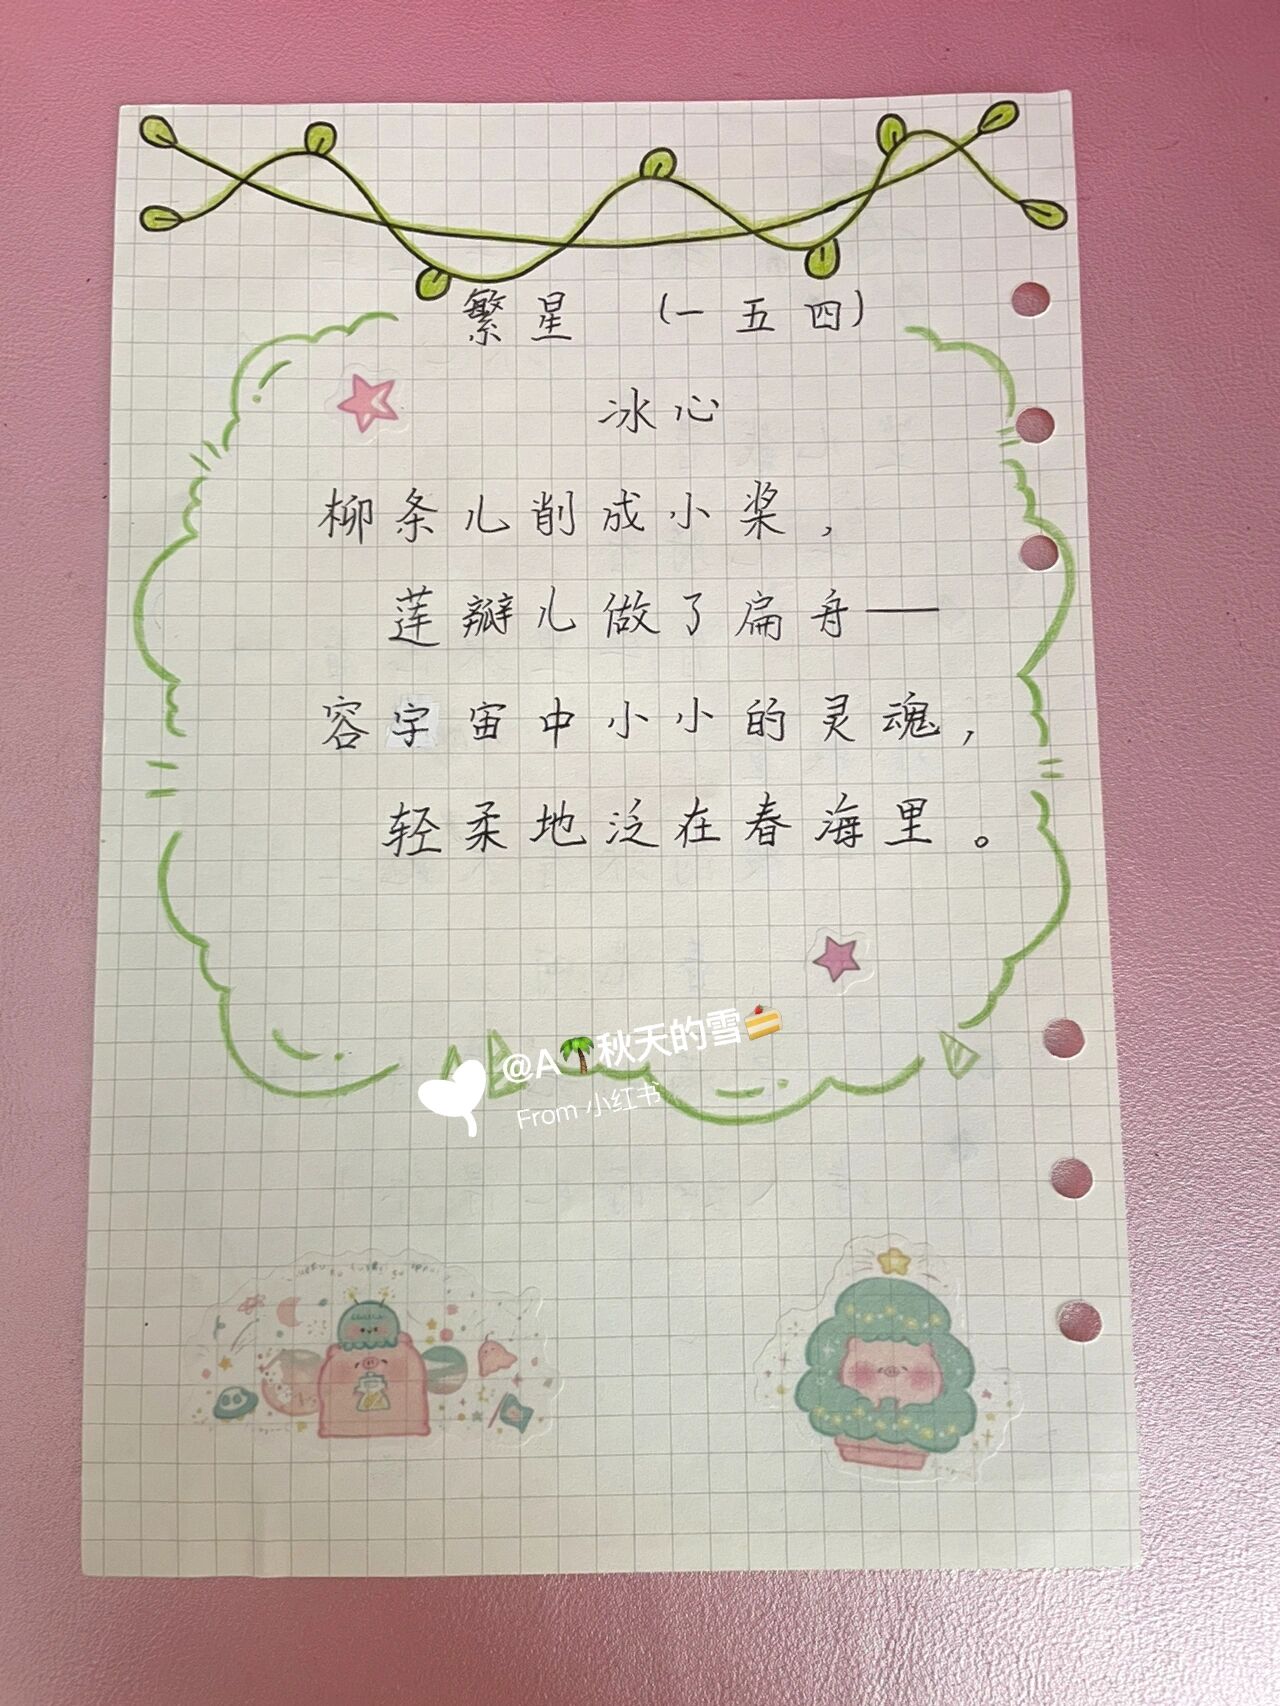 繁星 (一五四)
冰心
柳条儿削成小桨,
莲瓣儿做了扁舟——
容宇宙中小小的灵魂,
轻柔地泛在春海里。
@A🌴秋天的雪🍰
From 小红书